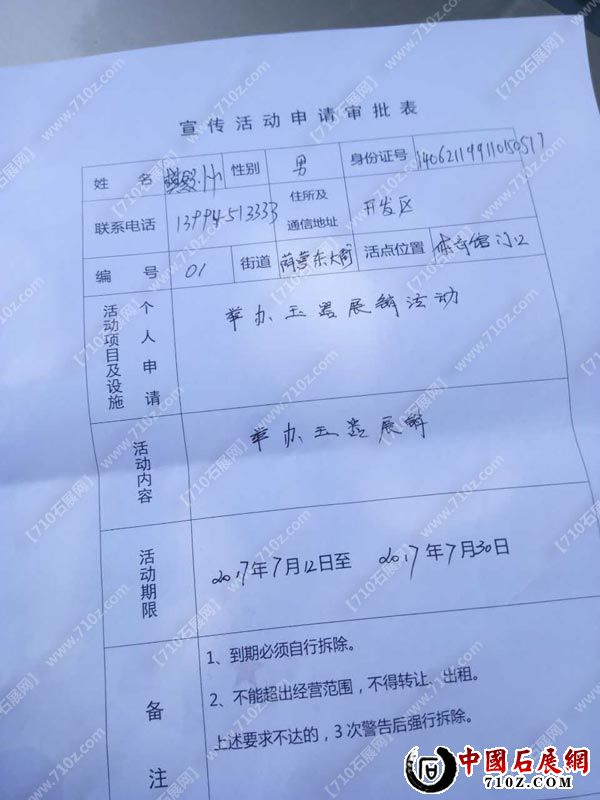 宣传活动申请审批表
姓 名 性别 男 身份证号
联系电话 13994513333 住所及通信地址 开发区
编 号 01 街道 东大街 活点位置 体育馆门口
活动项目及设施 个人申请 举办玉器展销活动
活动内容 举办玉器展销
活动期限 2017年7月12日至 2017年7月30日
备注
1、到期必须自行拆除。
2、不能超出经营范围，不得转让、出租。
上述要求不达的，3次警告后强行拆除。
中國石展網
710Z.COM
【710石展网】
www.710z.com